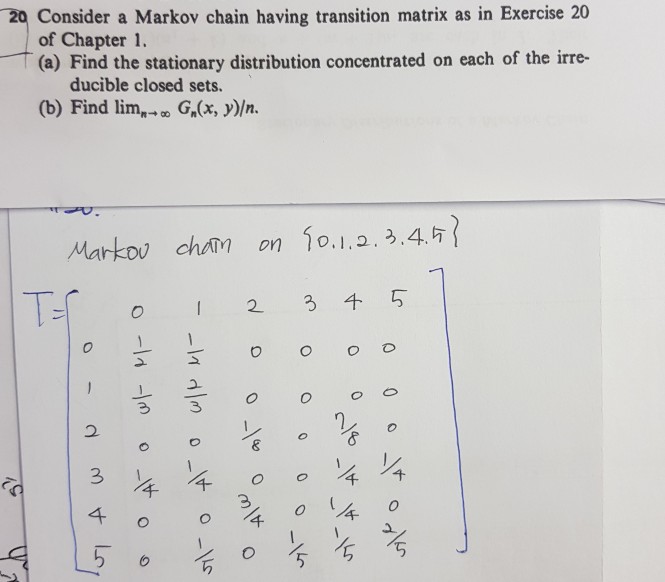 20 Consider a Markov chain having transition matrix as in Exercise 20
of Chapter 1.
(a) Find the stationary distribution concentrated on each of the irre-
ducible closed sets.
(b) Find lim_{n→∞} G_n(x, y)/n.
20.
Markov chain on {0.1.2.3.4.5}
T=
0 1 2 3 4 5
0 1/2 1/2 0 0 0 0
1 1/3 2/3 0 0 0 0
2 0 0 1/8 0 7/8 0
3 1/4 1/4 0 0 1/4 1/4
4 0 0 3/4 0 1/4 0
5 0 1/5 0 1/5 1/5 2/5